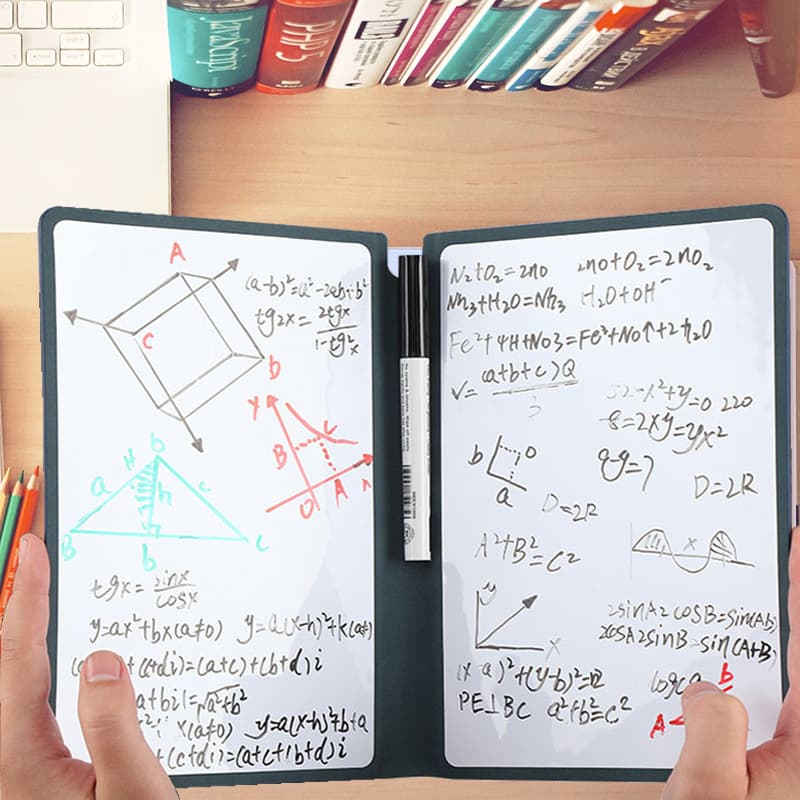 JavaScript
PHP5
A
(a-b)²=a²-2ab+b²
tg2x= 2tgx
1-tg²x
C
b
Y
B
C
O
A
b
H
a
h
c
B
b
C
tgx= sinx
cosx
y=ax²+bx(a≠0) y=a(x-h)²+k(a≠)
+(c+di)=(a+c)+(b+d)i
a+bi|=√a²+b²
x(a≠0) y=a(x-h)²+b+a
+(c+di)=(a+c+(b+d)i
N₂+O₂=2no 2no+O₂=2nO₂
Nh₃+H₂O=Nh₃ H₂O+OH⁻
Fe²+4H+NO3=Fe³+No↑+2h₂O
V= (a+b+c)Q
3
52-x²+y=0 220
-8=2xy=yx²
b
O
a
D=2R
D=2R
A²+B²=C²
x
y
X
2sinA2cosB=sin(Ab)
2cosA2sinB=sin(A+B)
(x-a)²+(y-b)²=
PE⊥BC a²+b²=c²
b
A